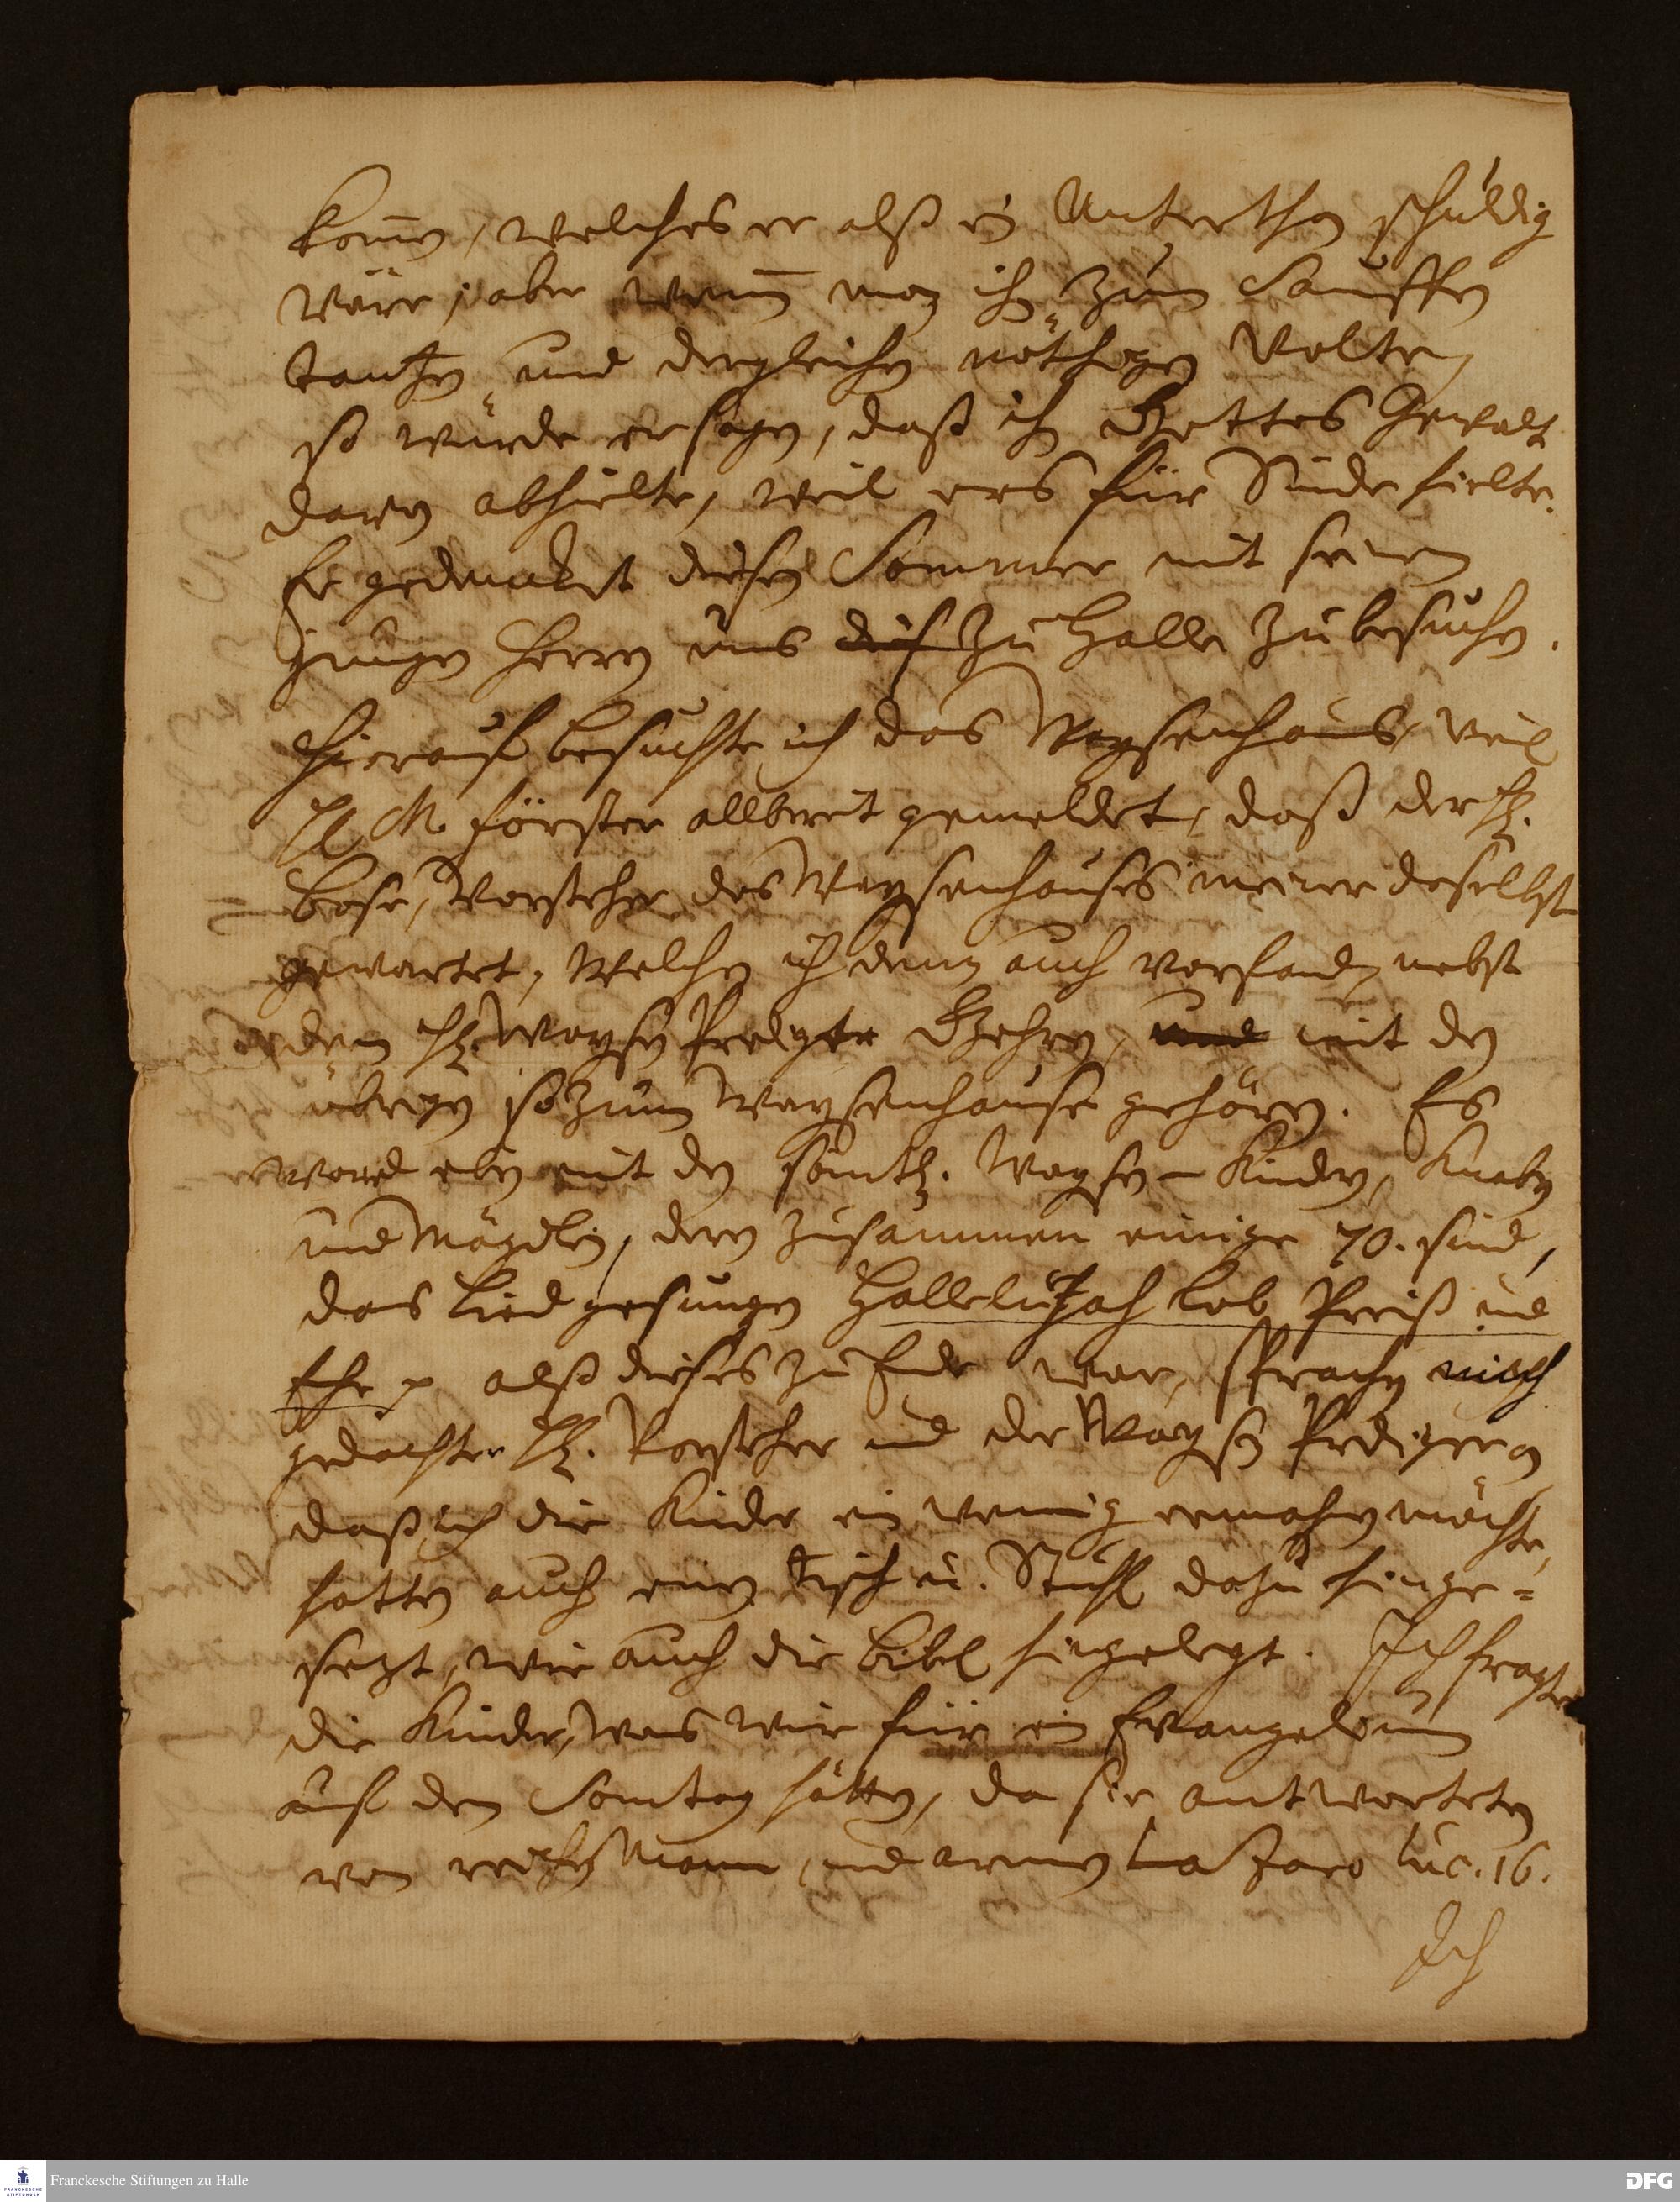 kom̅en, welches er alß ein Unterthan schuldig
wäre; aber wenn man ihn zum Sauffen
tantzen und dergleichen nöthigen wolte,
so würde er sagen, daß ihn Gottes Gewalt
davon abhielte, weil ers für Sünde hielte.
Er gedencket diesen Sommer mit seinen
jungen Herrn uns zu Halle zu besuchen.
Hierauf besuchte ich das Waysenhaus, weil
H. M. Förster allbereit gemeldet, daß der H.
Bose, Vorsteher des Waysenhauses meiner daselbst
gewartet, welchen ich denn auch vorfand, nebst
dem H. Waysen Prediger und mit den
übrigen so zum Waysenhause gehören. Es
ward eben mit den sämtl. Waysen-Kindern, Knaben
und Mägdlein, deren zusammen einige 70. sind,
das Lied gesungen Hallelujah Lob Preiß und
Ehr p alß dieses zu Ende war, sprachen mich
gedachter H. Vorsteher und der Waysen Prediger an
daß ich die Kinder ein wenig ermahnen möchte,
hatten auch einen Tisch u. Stuhl dazu hinge=
setzt, wie auch die Bibel hingelegt. Ich fragte
die Kinder, was wir für ein Evangelium
auf den Sontag hätten, da sie antworteten
vom reichen Mann, und armen Lazaro Luc. 16.
Ich
Franckesche Stiftungen zu Halle
DFG